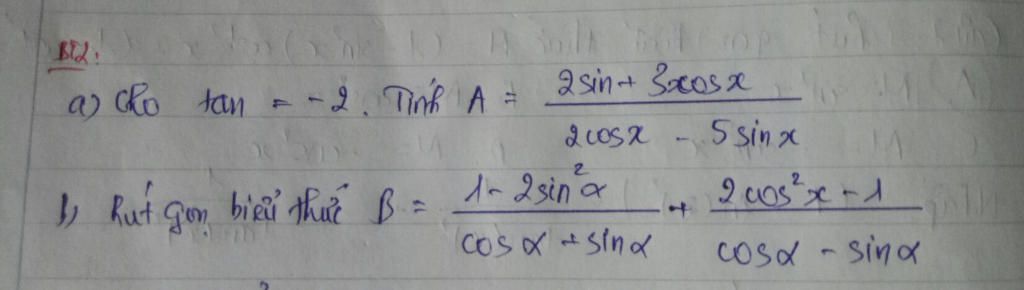 Bt2:
a) Cho tan = -2. Tính A = (2sin + 3xcosx) / (2cosx - 5sinx)
b) Rút gọn biểu thức B = (1 - 2sin²α) / (cosα + sinα) + (2cos²x - 1) / (cosα - sinα)